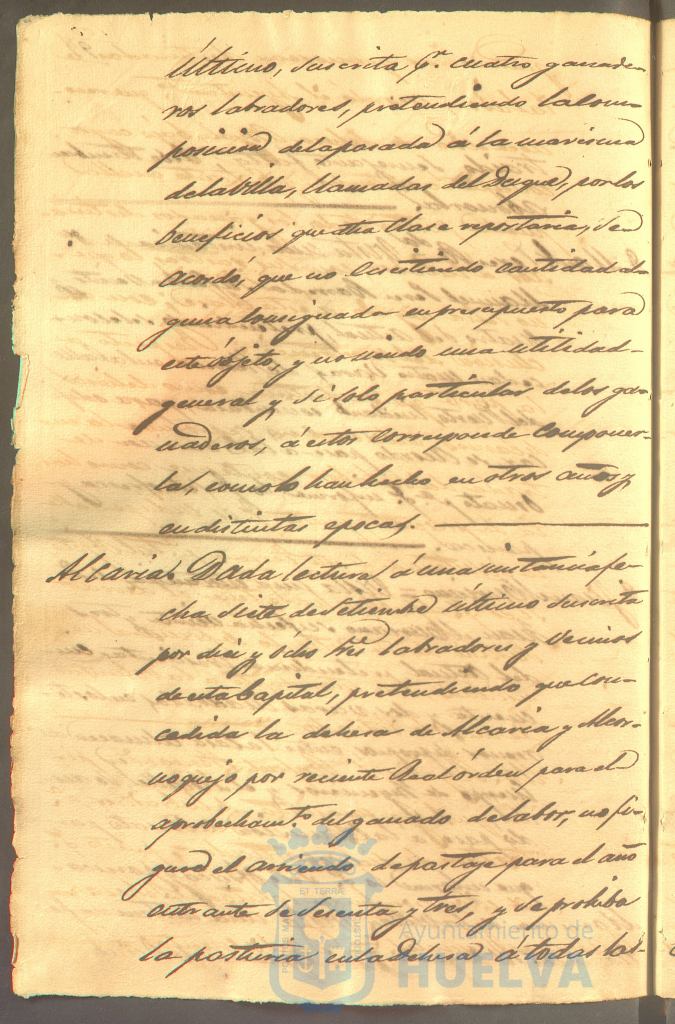 Ultimo, suscrita pr. cuatro ganade-
ros labradores, pretendiendo la com-
posicion de la pasada á la marisma
de la Villa, llamadas del Duque, por los
beneficios que á tha clase reportaria, se
acordó, que no ecsistiendo cantidad al-
guna consignada en presupuesto para
este objeto, y no siendo una utilidad
general y si solo particular de los ga-
naderos, á estos corresponde componer-
la, como lo han hecho en otros años y
en distintas epocas.
Alcaria. Dada lectura á una instancia fe-
cha siete de Setiembre último suscrita
por diez y ócho tres labradores y vecinos
de esta Capital, pretendiendo que con-
cedida la dehesa de Alcaria y Alcor-
noquejo por reciente Real órden para el
aprobechamto. del ganado de labor, no fi-
gure el arriendo de pastaje para el año
entrante de sesenta y tres, y se prohiba
la pasturia en la dehesa á todas las
ET TERRÆ
Ayuntamiento de
HUELVA